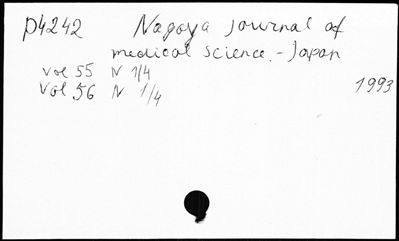 p4242 Nagoya journal of
medical science. - Japan
vol 55 N 1/4
Vol 56 N 1/4 1993